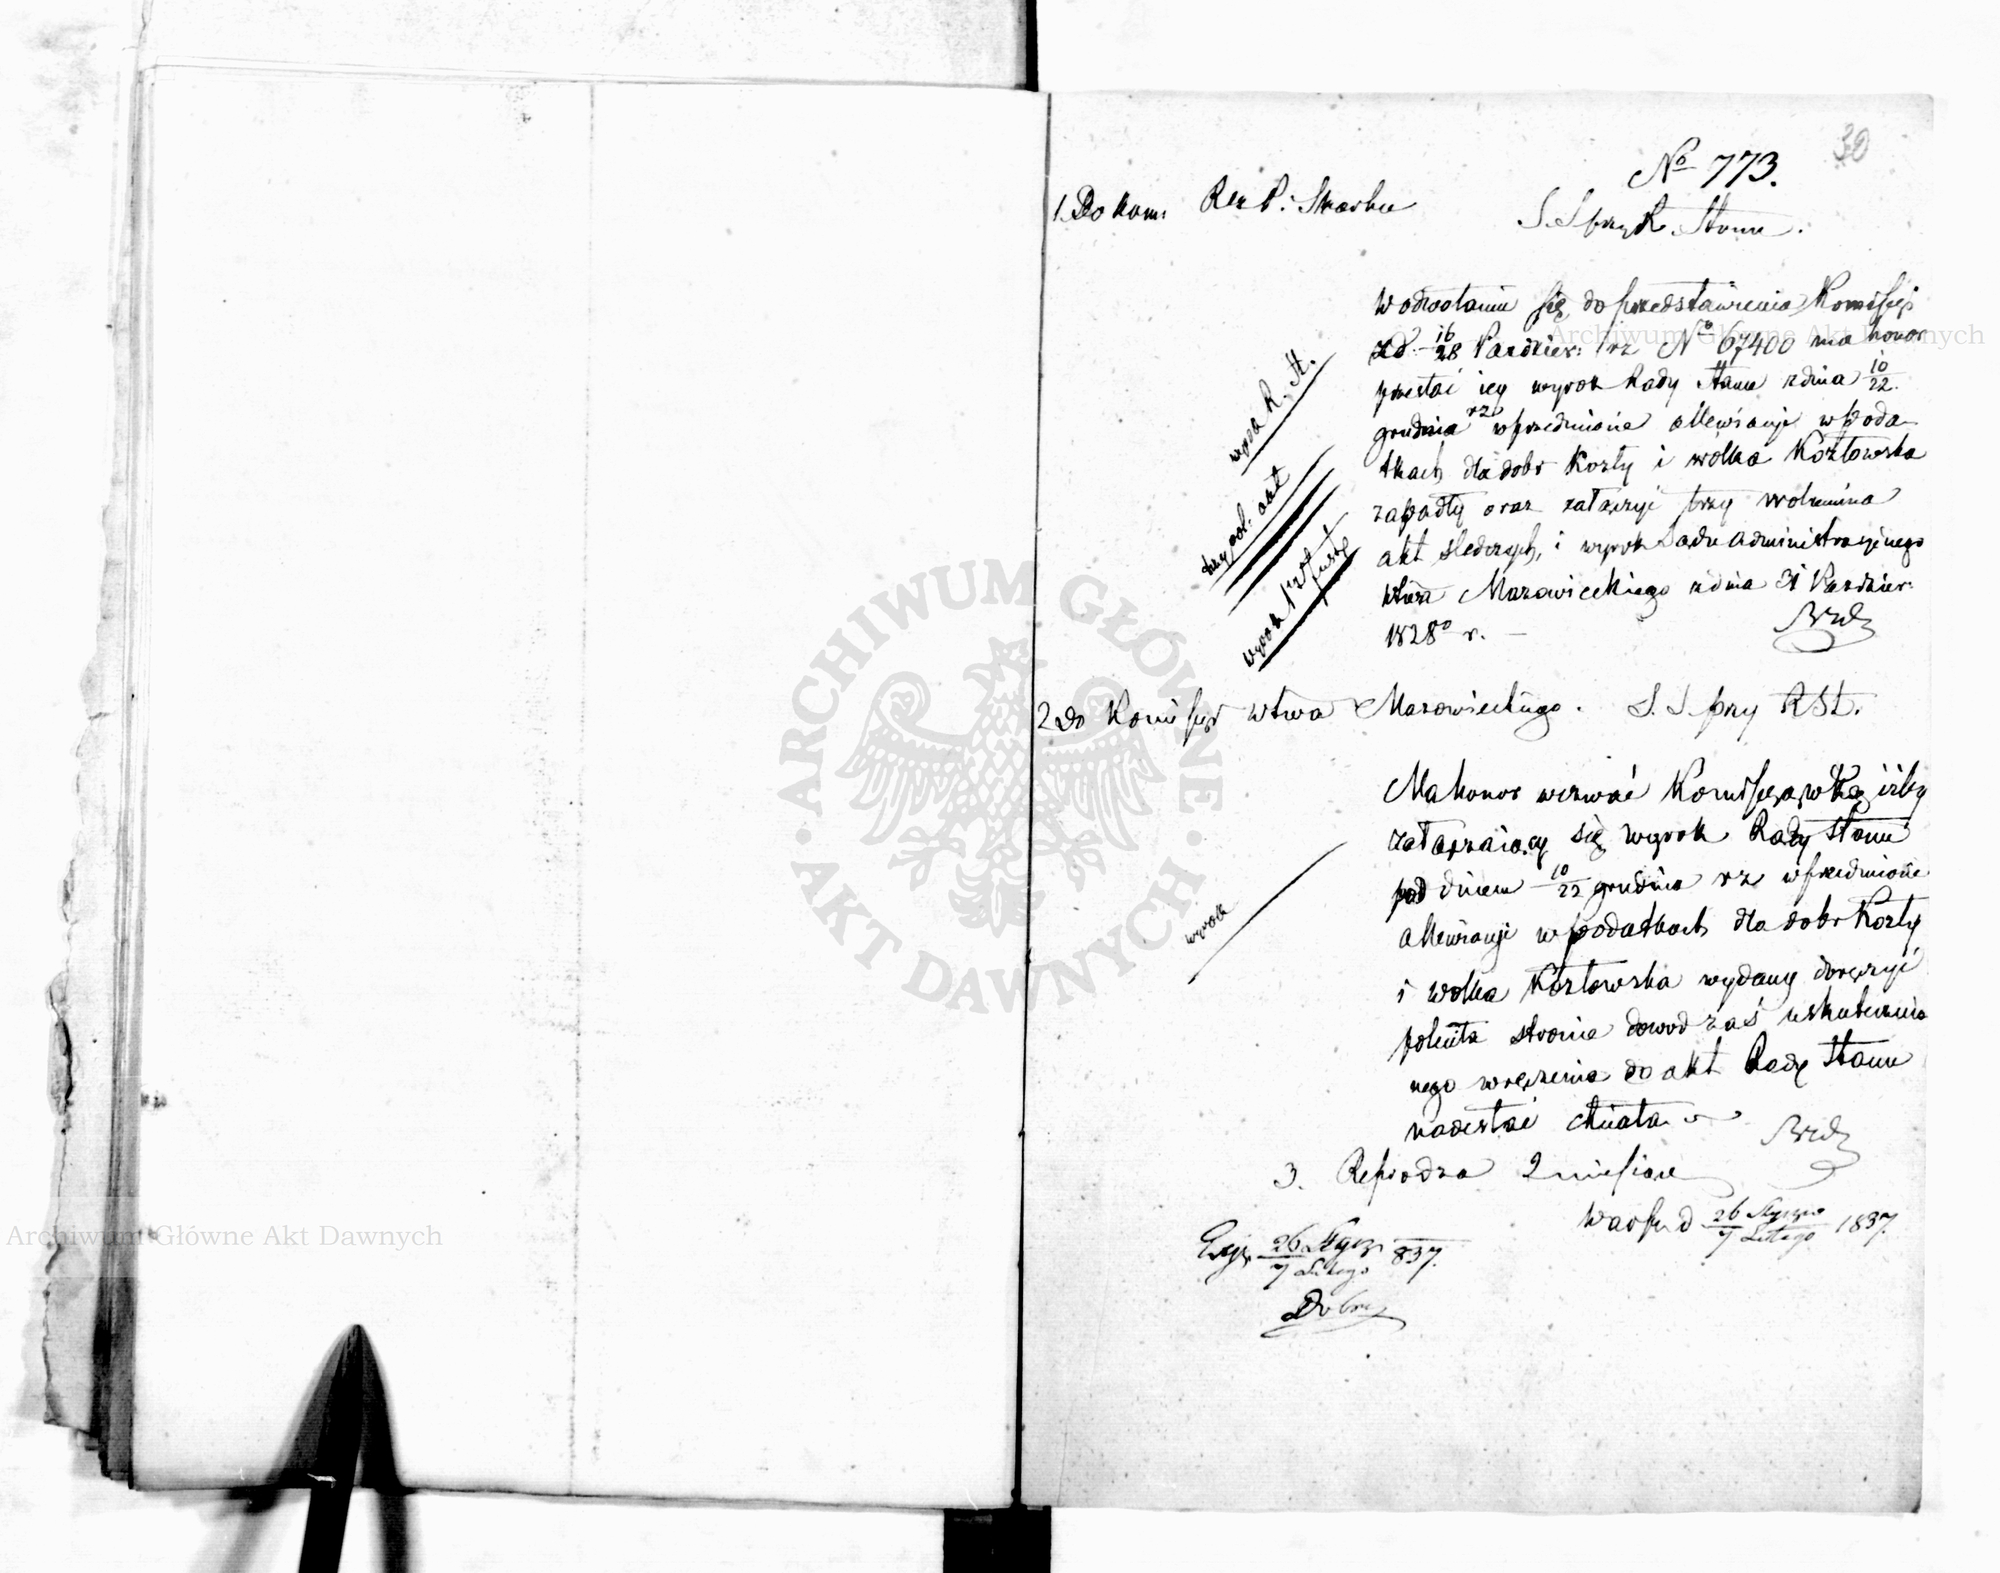 30
No 773.
1. Do Kom: Rz P: Skarbu
S. S przy R. Stanu.
W odwołaniu się do przedstawienia Kommissyi
z d. 16/28 Paździer: rz No 67400 ma honor
przesłać iey wyrok Rady Stanu z dnia 10/22
grudnia rz w przedmiocie allewiacyi w poda
tkach dla dobr Kozły i wólka Kozłowska
zapadły oraz załączyć trzy wolumina
akt śledczych, i wyrok Sądu Administracyinego
wtwa Mazowieckiego z dnia 31 Paździer:
1828o r. —
wyrok R. St.
trzy vol: akt
wyrok 1rz
2 do Komissyi wtwa Mazowieckiego. S. S. przy R St.
Ma honor wezwać Kommissyą wtką iżby
załączaiący się wyrok Rady Stanu
pod dniem 10/22 grudnia rz w przedmiocie
allewiacyi w podatkach dla dobr Kozły
i wolka Kozłowska wydany doręczyć
poleciła stronie dowod zaś uskutecznio
nego wręczenia do akt Rady Stanu
nadesłać chciała
wyrok
3. Reproduza 2 miesiące
Warsz. d 26 Stycznia/7 Lutego 1837.
Exp. 26 Stycz./7 Lutego 837.
Dobrz
ARCHIWUM GŁÓWNE
AKT DAWNYCH
Archiwum Główne Akt Dawnych
Archiwum Główne Akt Dawnych